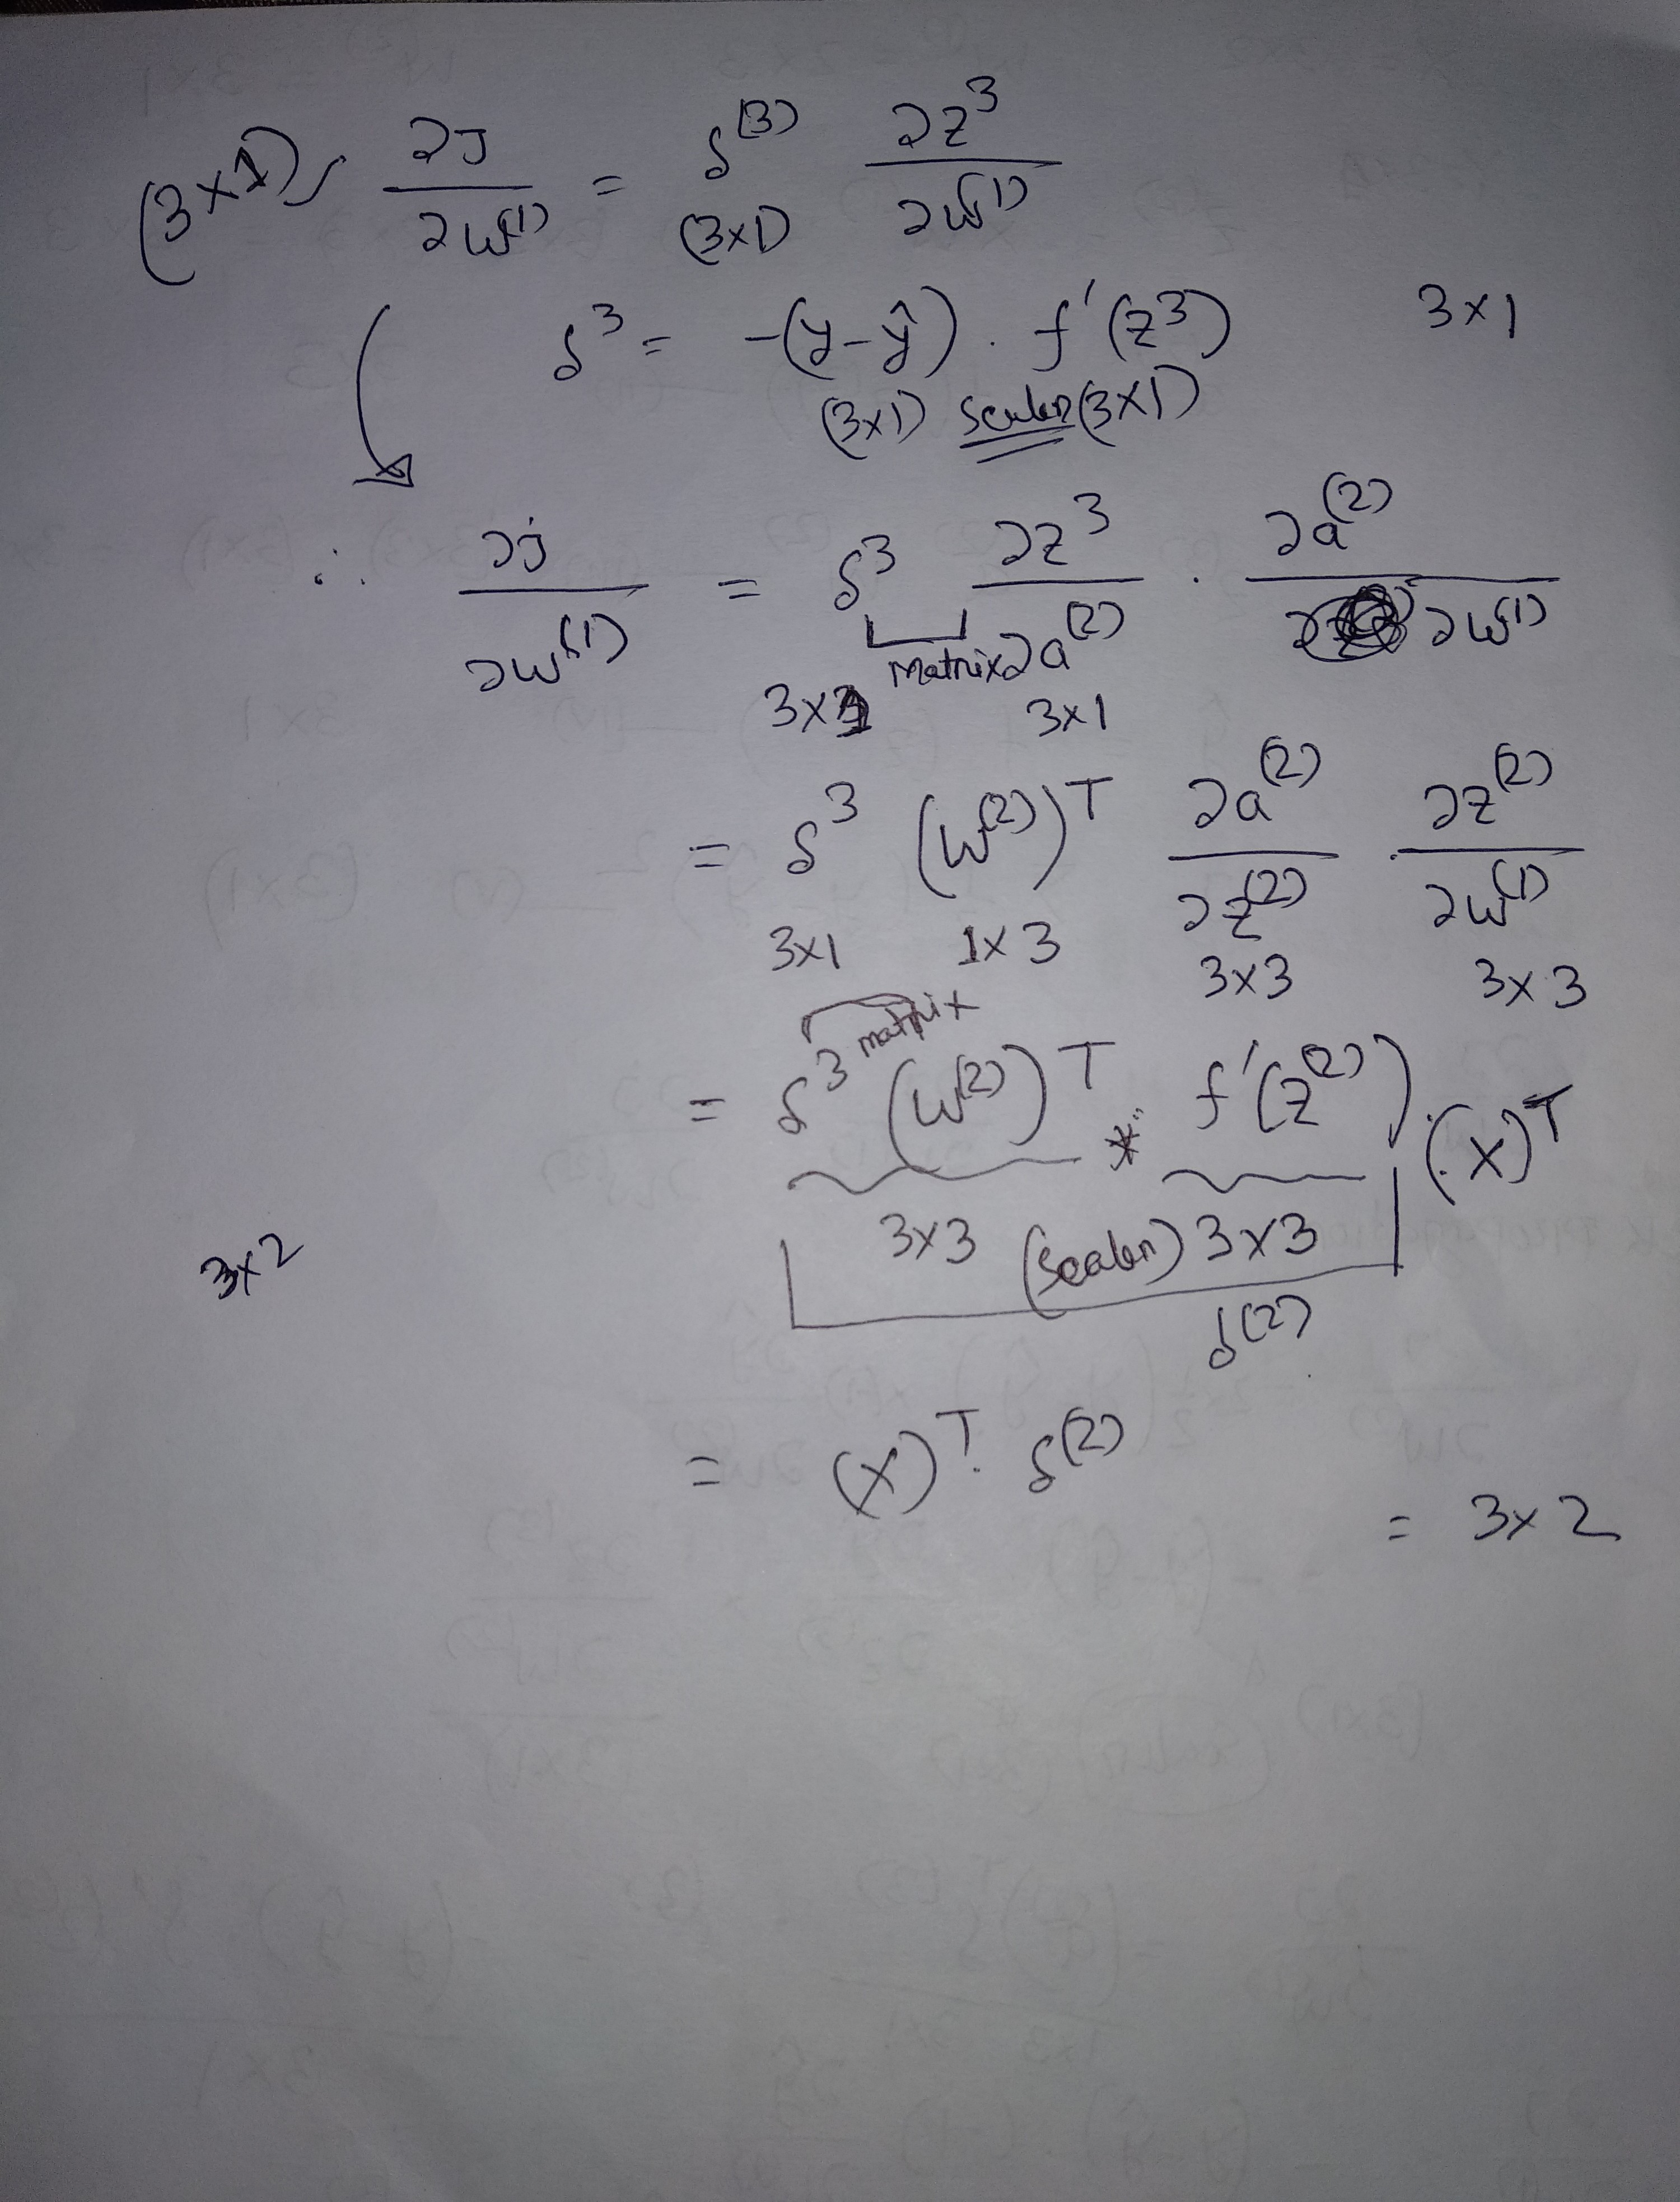 (3×1), ∂J/∂W⁽¹⁾ = δ⁽³⁾ ∂z³/∂W⁽¹⁾
(3×1)
δ³ = -(y-ŷ) . f'(z³) 3×1
(3×1) scaler (3×1)
∴ ∂j/∂W⁽¹⁾ = δ³ ∂z³/∂a⁽²⁾ . ∂a⁽²⁾/∂W⁽¹⁾
matrix
3×1 3×1
= δ³ (W⁽²⁾)ᵀ ∂a⁽²⁾/∂z⁽²⁾ . ∂z⁽²⁾/∂W⁽¹⁾
3×1 1×3 3×3 3×3
matrix
= δ³ (W⁽²⁾)ᵀ * f'(z⁽²⁾) . (X)ᵀ
3×3 (scaler) 3×3
3×2
δ⁽²⁾
= (X)ᵀ . δ⁽²⁾
= 3×2